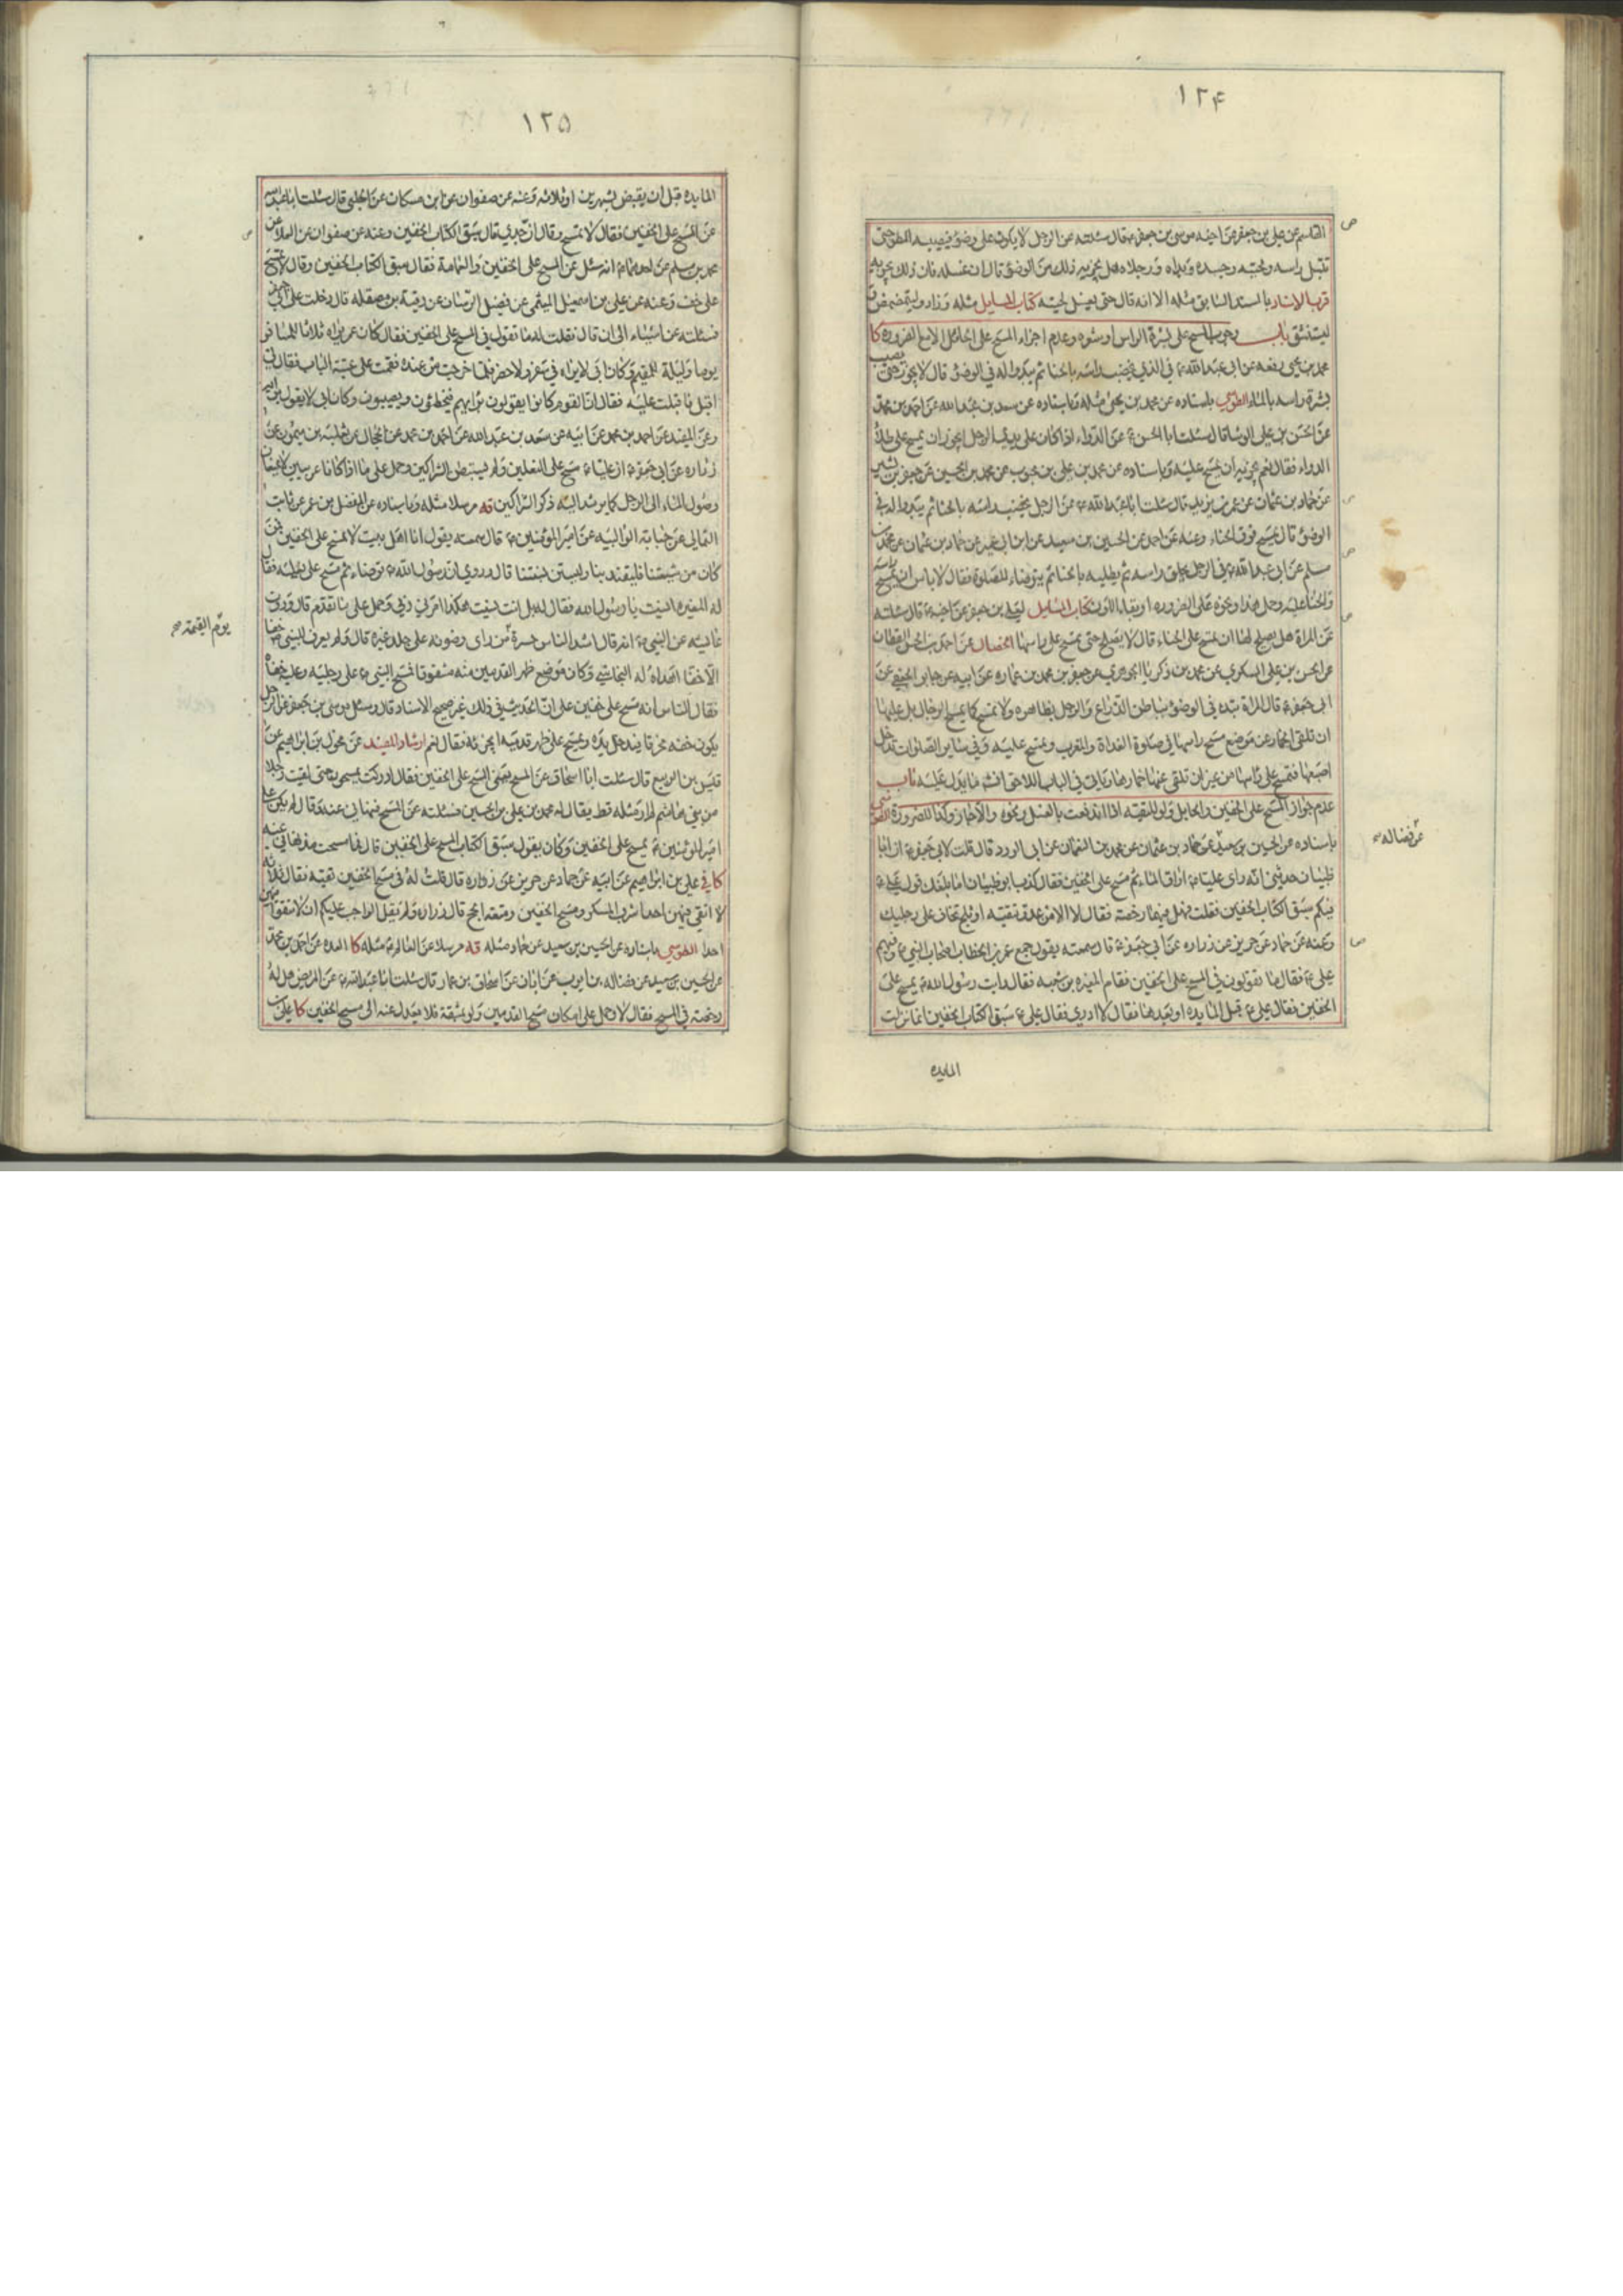 ١٢۴
القاسم عن علي بن جعفر عن اخيه موسى بن جعفر ع قال سئلته عن الرجل لا يكون على وضوء فيصيبه المطر حتى
تبتل راسه ولحيته وجسده ويداه ورجلاه هل يجزيه ذلك من الوضوء قال ان غسله فان ذلك يجزيه
قرب الاسناد بالسند السابق مثله الا انه قال حتى يغسل لحيته كتاب المسايل مثله وزاد وليتمضمض و
ليستنشق باب وجوب المسح على بشرة الراس او شعره وعدم اجزاء المسح على الحائل الا مع الضرورة كا
محمد بن يحيى رفعه عن ابي عبد الله ع في الذي يخضب راسه بالحنا ثم يبدو له في الوضوء قال لا يجوز حتى يصيب
بشرة راسه بالماء الطوسي باسناده عن محمد بن يحيى مثله وباسناده عن سعد بن عبد الله عن احمد بن محمد
عن الحسن بن علي الوشا قال سئلت ابا الحسن ع عن الدواء اذا كان على يدي الرجل ايجزيه ان يمسح على طلا
الدواء فقال نعم يجزيه ان يمسح عليه وباسناده عن محمد بن علي بن محبوب عن محمد بن الحسين عن جعفر بن بشير
عن حماد بن عثمان عن عمر بن يزيد قال سئلت ابا عبد الله ع عن الرجل يخضب راسه بالحنا ثم يبدو له في
الوضوء قال يمسح فوق الحناء وعنه عن احمد عن الحسين بن سعيد عن ابن ابي عمير عن حماد بن عثمان عن محمد بن
مسلم عن ابي عبد الله ع في الرجل يحلق راسه ثم يطليه بالحنا ثم يتوضاء للصلوة فقال لا باس ان يمسح راسه
والحنا عليه وحمل هذا ونحوه على الضرورة كتاب المسايل لعلي بن جعفر عن اخيه ع قال سئلته
عن المراة هل يصلح لها ان تمسح على الحناء قال لا يصلح حتى تمسح على راسها الخصال عن احمد بن الحسن القطان
عن الحسن بن علي السكري عن محمد بن زكريا الجوهري عن جعفر بن محمد بن عماره عن ابيه عن جابر الجعفي عن
ابي جعفر ع قال المراة تبدء في الوضوء بباطن الذراع والرجل بظاهره ولا تمسح كما يمسح الرجال بل عليها
ان تلقي الخمار عن موضع مسح راسها في صلوة الغداة والمغرب وتمسح عليه وفي سائر الصلوات تدخل
اصبعها فتمسح على راسها من غير ان تلقي عنها خمارها وياتي في الباب اللاحق انشا ما يدل عليه باب
عدم جواز المسح على الخفين والحايل ولو للتقية اذا اندفعت بالغسل ونحوه والاخبار وكذا للضرورة الطوسي
باسناده عن الحسين بن سعيد عن حماد بن عثمان عن محمد بن النعمان عن ابي الورد قال قلت لابي جعفر ع ان ابا
ظبيان حدثني انه راى عليا ع اراق الماء ثم مسح على الخفين فقال كذب ابو ظبيان اما بلغك قول علي ع
فيكم سبق الكتاب الخفين فقلت فهل فيهما رخصة فقال لا الا من عدو تتقيه او ثلج تخاف على رجليك
وعنه عن حماد عن حريز عن زراره عن ابي جعفر ع قال سمعته يقول جمع عمر بن الخطاب اصحاب النبي ص وفيهم
علي ع فقال ما تقولون في المسح على الخفين فقام المغيره بن شعبه فقال رايت رسول الله ص يمسح على
الخفين فقال علي ع قبل المايده او بعدها فقال لا ادري فقال علي ع سبق الكتاب الخفين انما نزلت
المايده
عن فضاله صح
١٢۵
المايده قبل ان يقبض بشهرين او ثلاثه وعنه عن صفوان عن ابن مسكان عن الحلبي قال سئلت ابا عبد الله
عن المسح على الخفين فقال لا تمسح وقال ان جدي قال سبق الكتاب الخفين وعنه عن صفوان عن العلا عن
محمد بن مسلم عن احدهما ع انه سئل عن المسح على الخفين والعمامة فقال سبق الكتاب الخفين وقال لا تمسح
على خف وعنه عن علي بن اسمعيل الميثمي عن فضيل الرسان عن رقبة بن مصقله قال دخلت على ابي جعفر
فسئلته عن اشياء الى ان قال فقلت له ما تقول في المسح على الخفين فقال كان عمر يراه ثلاثا للمسافر
يوما وليلة للمقيم وكان ابي لا يراه في سفر ولا حضر فلما خرجت من عنده فقمت على عتبة الباب فقال لي
اقبل فاقبلت عليه فقال ان القوم كانوا يقولون برايهم فيخطئون ويصيبون وكان ابي لا يقول برايه
وعن المفيد عن احمد بن محمد عن ابيه عن سعد بن عبد الله عن احمد بن محمد عن الحجال عن ثعلبة بن ميمون عن
زراره عن ابي جعفر ع ان عليا ع مسح على النعلين ولم يستبطن الشراكين وحمل على ما اذا كانا عربيين لا يمنعان
وصول الماء الى الرجل كما يرشد اليه ذكر الشراكين قه مرسلا مثله وباسناده عن المفضل بن عمر عن ثابت
الثمالي عن حبابة الوالبيه عن امير المؤمنين ع قال سمعته يقول انا اهل بيت لا نمسح على الخفين فمن
كان من شيعتنا فليقتد بنا وليستن بسنتنا قال وروي ان رسول الله ص توضاء ثم مسح على نعليه فقال
له المغيره انسيت يا رسول الله فقال له بل انت نسيت هكذا امرني ربي وحمل على ما تقدم قال وروت
عايشه عن النبي ص انه قال اشد الناس حسرة من راى وضوئه على جلد غيره قال ولم يعرف للنبي ص خفا
الا خفا اهداه له النجاشي وكان موضع ظهر القدمين منه مشقوقا فمسح النبي ص على رجليه وعليه خفاه
فقال الناس انه مسح على خفيه على ان الحديث في ذلك غير صحيح الاسناد قال وسئل موسى بن جعفر عن الرجل
يكون خفه مخرقا فيدخل يده ويمسح على ظهر قدميه ايجزيه فقال نعم ارشاد المفيد عن مخول بن ابراهيم عن
قيس بن الربيع قال سئلت ابا اسحاق عن المسح يعني المسح على الخفين فقال ادركت يمسحون حتى لقيت رجلا
من بني هاشم لم ار مثله قط يقال له محمد بن علي بن الحسين فسئلته عن المسح فنهاني عنه وقال لم يكن علي
امير المؤمنين ع يمسح على الخفين وكان يقول سبق الكتاب المسح على الخفين قال فما مسحت مذ نهاني عنه
كا في علي بن ابراهيم عن ابيه عن حماد عن حريز عن زراره قال قلت له في مسح الخفين تقيه فقال ثلاثه
لا اتقي فيهن احدا شرب المسكر ومسح الخفين ومتعة الحج قال زراره ولم يقل الواجب عليكم ان لا تتقوا فيهن
احدا الطوسي باسناده عن الحسين بن سعيد عن حماد مثله قه مرسلا عن العالم ع مثله كا العده عن احمد بن محمد
عن الحسين بن سعيد عن فضاله بن ايوب عن ابان عن اسحاق بن عمار قال سئلت ابا عبد الله ع عن المريض هل له
رخصة في المسح فقال لا وحمل على امكان مسح القدمين ولو بمشقة فلا يعدل عنه الى مسح الخفين كا علي بن
يوم القيمة صح